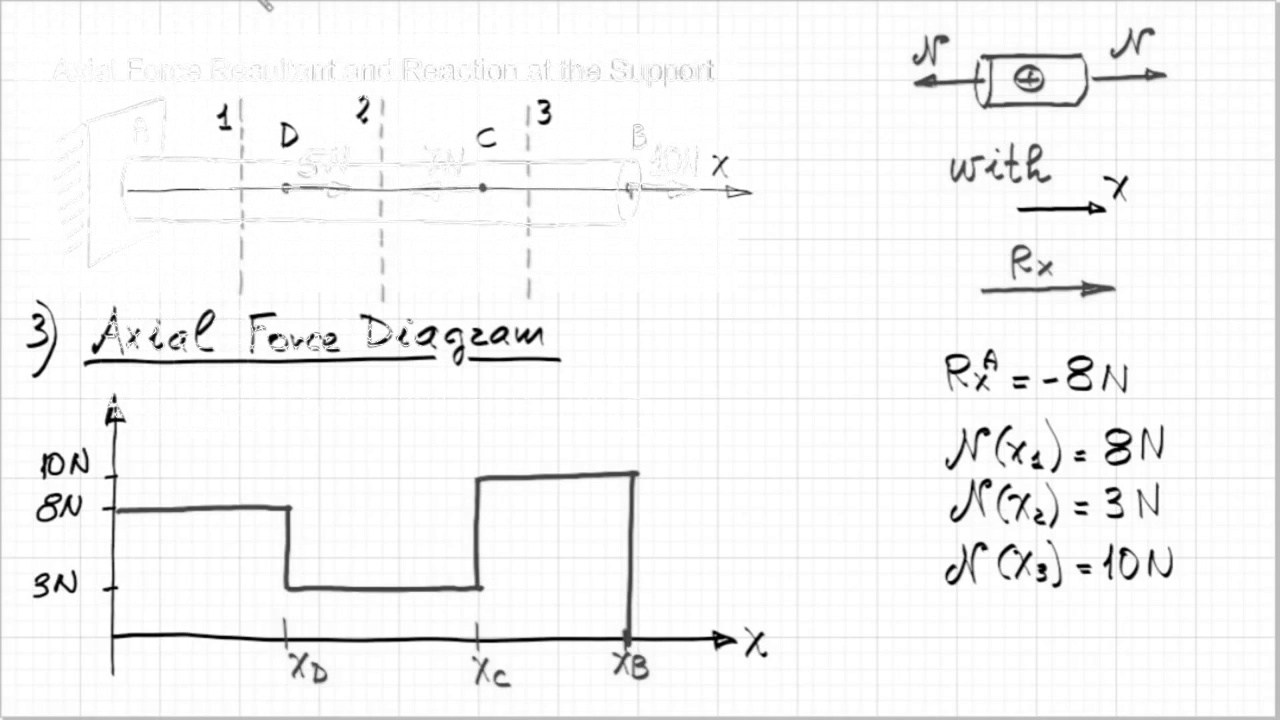 Axial Force Resultant and Reaction at the Support
1 2 3
A D C B
5N 7N 10N x
3) Axial Force Diagram
10N
8N
3N
xD xC xB x
N N
+
with
x
Rx
RxA = -8N
N(x1) = 8N
N(x2) = 3N
N(x3) = 10N